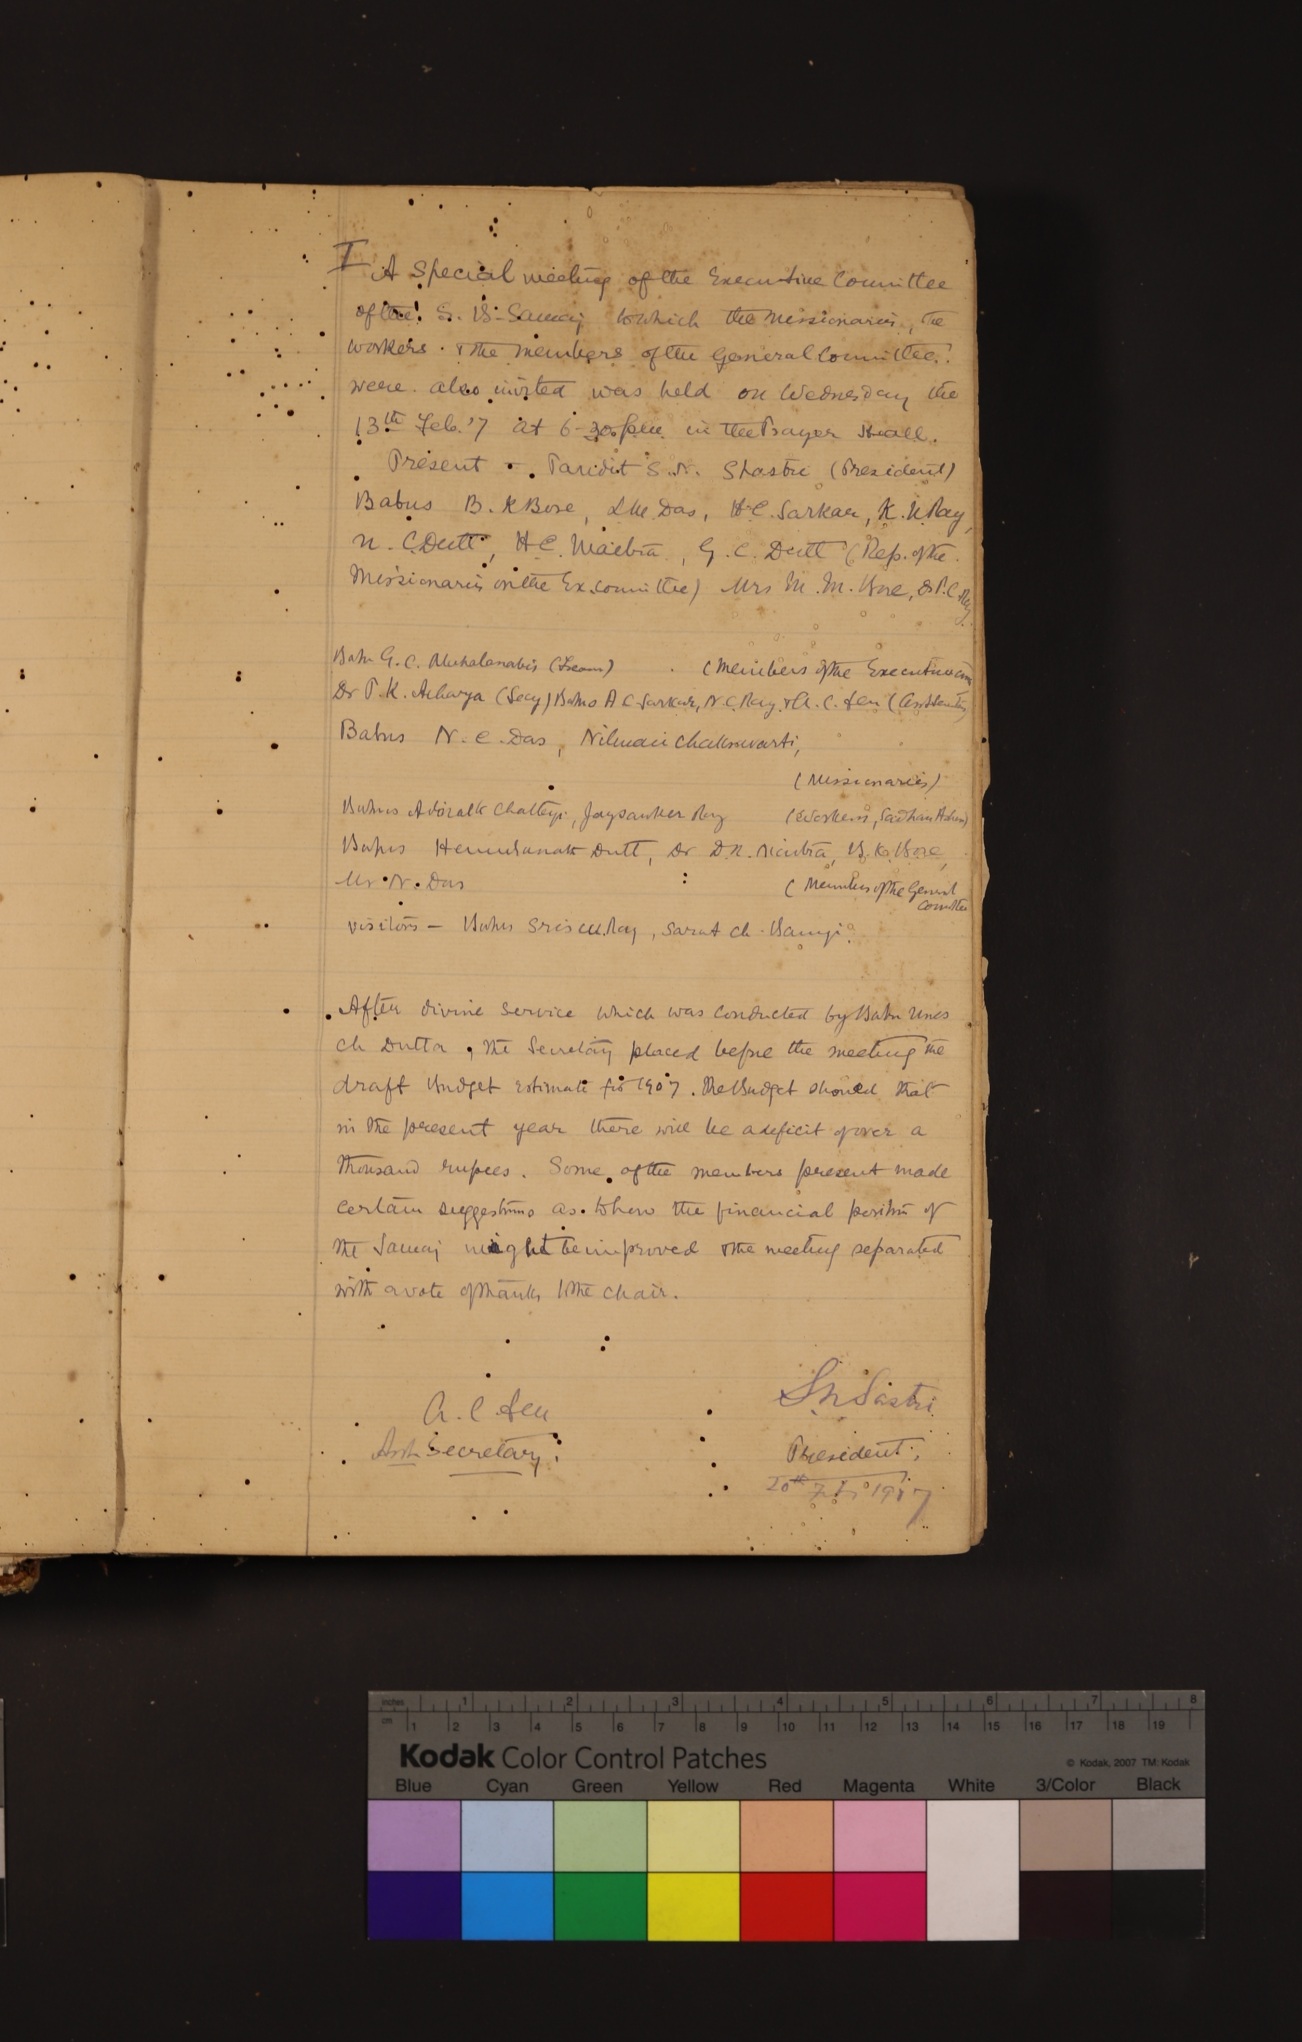 I
A Special meeting of the Executive Committee
of the S. B. Samaj to which the Missionaries, the
workers & the members of the General Committee
were also invited was held on Wednesday the
13th Feb. '7 at 6-30 p.m. in the Prayer Hall.
Present - Pandit S. N. Shastri (President)
Babus B. K Bose, L.M. Das, H.C. Sarkar, K. N. Ray,
N. C. Dutt, H.C. Maitra, G. C. Dutt (Rep. of the
Missionaries on the Ex. Committee) Mrs M. M. Bose, Dr P. C. Ray
Babu G. C. Mahalanabis (Treasr) (Members of the Executive Com
Dr P. K. Acharya (Secy) Babus A C Sarkar, N. C. Ray & A. C. Sen (Asst Secretaries)
Babus N. C. Das, Nilmani Chakravarti,
(Missionaries)
Babus Abinash Chatterji, Jaysanker Ray (Workers, Sadhan Ashram)
Babus Hemendranath Dutt, Dr D. N. Maitra, B. K. Bose,
Mr. N. Das (Members of the General
Committee
Visitors - Babus Sris Ch. Ray, Sarat Ch. Banerji.
After divine service which was conducted by Babu Umes
Ch Dutta, the Secretary placed before the meeting the
draft Budget estimate for 1907. The Budget showed that
in the present year there will be a deficit of over a
thousand rupees. Some of the members present made
certain suggestions as to how the financial position of
the Samaj might be improved & the meeting separated
with a vote of thanks to the chair.
A. C. Sen
Asst. Secretary.
S N Sastri
President.
20th Feb 1907
Kodak Color Control Patches
© Kodak, 2007 TM: Kodak
inches 1 2 3 4 5 6 7 8
cm 1 2 3 4 5 6 7 8 9 10 11 12 13 14 15 16 17 18 19
Blue Cyan Green Yellow Red Magenta White 3/Color Black